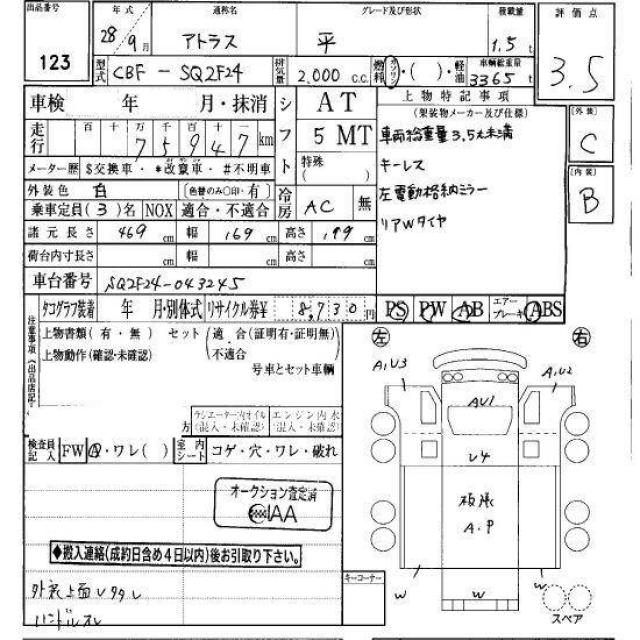 出品番号 年式 通称名 グレード及び形状 積載量 評価点
123 28/9月 アトラス 平 1.5t 3.5
型式 CBF-SQ2F24 排気量 2,000 c.c. 燃料 ガソリン・( )・軽油 車輌総重量 3365t
車検 年 月・抹消 シフト AT 上物特記事項 [外装]
5 MT (架装物メーカー及び仕様) C
走行 百 十 万 千 百 十
7 5 9 4 7 km 特殊( ) 車両総重量3.5t未満
メーター歴 $交換車・*改竄車・#不明車 キーレス [内装]
外装色 白 (色替のみ○印・有) 冷房 AC 無 左電動格納ミラー B
乗車定員(3)名 NOX 適合・不適合 リアWタイヤ
諸元長さ 469cm 幅 169cm 高さ 199cm
荷台内寸長さ cm 幅 cm 高さ cm
車台番号 SQ2F24-043245
タコグラフ装着 年 月・別体式 リサイクル券¥ 8,730円 PS PW AB エアーブレーキ ABS
注意事項(出品店記入)
上物書類(有・無) セット(適合(証明有・証明無)
上物動作(確認・未確認) ・不適合
号車とセット車輌
左 右
A1U3 A1U2
AU1
U4
板張
A.P
ラジエーター内オイル エンジン内水
方(混入・未確認) (混入・未確認)
検査員記入 FW A・ワレ( ) 室内シート コゲ・穴・ワレ・破れ
オークション査定済
IAA
◆搬入連絡(成約日含め4日以内)後お引取り下さい。
キーコーナー
w w w
スペア